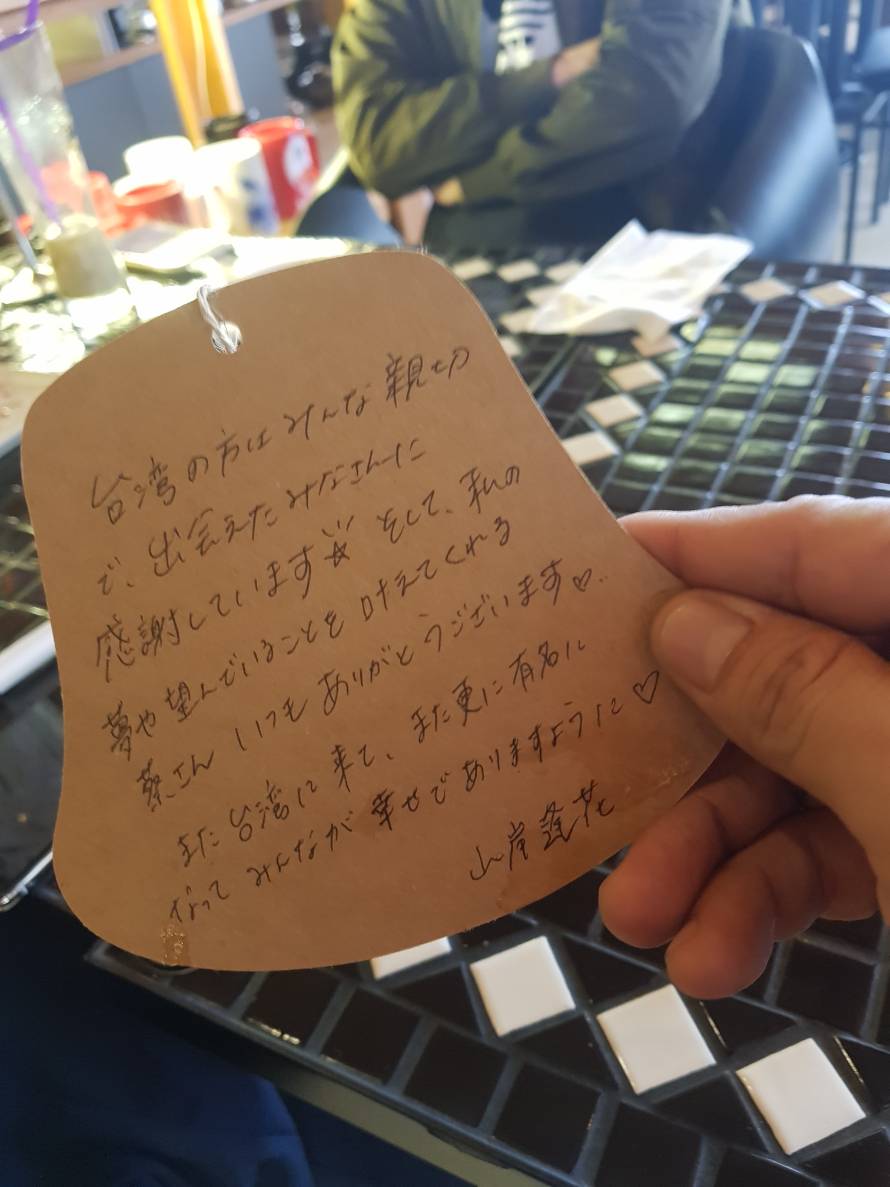 台湾の方はみんな親切
で、出会えたみなさんに
感謝しています☆ そして、私の
夢や望んでいることを叶えてくれる
蔡さん いつもありがとうございます♡
また台湾に来て、また更に有名に
なってみんなが幸せでありますように♡
山岸逢花